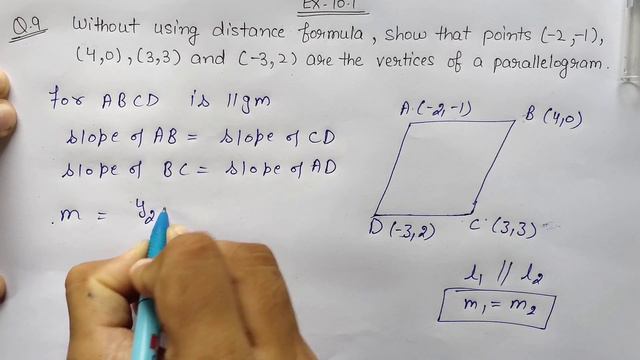 EX-10.1
Q.9 Without using distance formula, show that points (-2,-1),
(4,0), (3,3) and (-3,2) are the vertices of a parallelogram.
For ABCD is ||gm
slope of AB = slope of CD
slope of BC = slope of AD
m = y2
A (-2,-1)
B (4,0)
D (-3,2)
C (3,3)
l1 // l2
m1 = m2